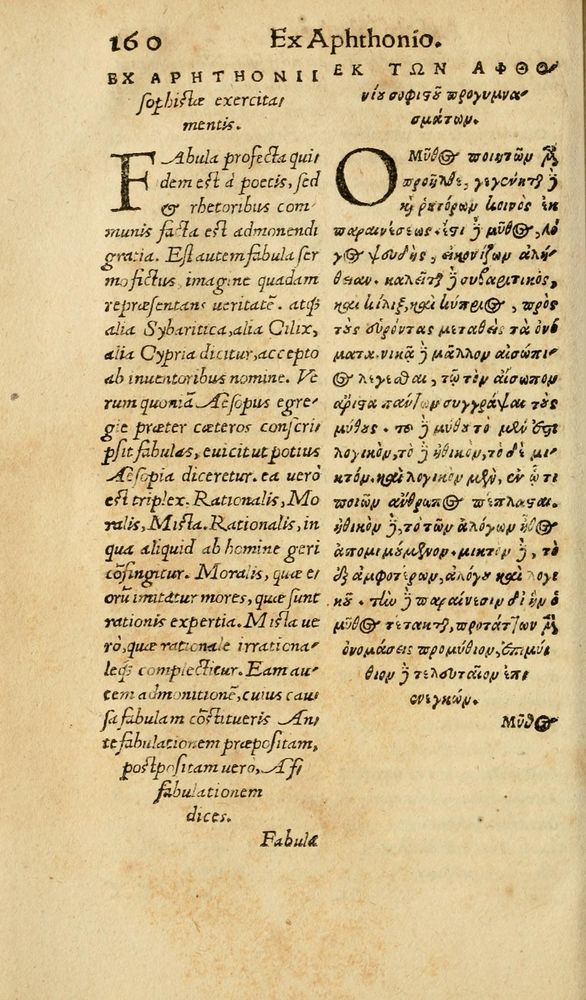 160
Ex Aphthonio.
EX APHTHONII
sophistæ exercita⸗
mentis.
FAbula profecta qui⸗
dem est à poetis, sed
& rhetoribus com⸗
munis facta est admonendi
gratia. Est autem fabula ser
mo fictus, imagine quadam
repræsentans ueritatē. atq;
alia Sybaritica, alia Cilix,
alia Cypria dicitur, accepto
ab inuentoribus nomine. Ve
rum quoniā Aesopus egre⸗
gie præter cæteros conscri⸗
psit fabulas, euicit ut potius
Aesopia diceretur. ea uerò
est triplex. Rationalis, Mo
ralis, Mista. Rationalis, in
qua aliquid ab homine geri
cōfingitur. Moralis, quæ e⸗
orū imitatur mores, quæ sunt
rationis expertia. Mista ue
rò, quæ rationale irrationa⸗
leq; complectitur. Eam au⸗
tem admonitionē, cuius cau⸗
sa fabulam cōstitueris An⸗
te fabulationem præpositam,
postpositam uerò, Af⸗
fabulationem
dices.
Fabulæ
ΕΚ ΤΩΝ ΑΦΘΟ⸗
νίου σοφιστοῦ προγυμνα⸗
σμάτων.
Ο Μῦθος ποιητῶν μὲν
προῆλθε, γεγένηται δὲ
καὶ ῥητόρων κοινὸς ἐκ
παραινέσεως. ἔστι δὲ μῦθος, λό
γος ψευδὴς, εἰκονίζων ἀλή⸗
θειαν. καλεῖται δὲ συβαριτικὸς,
καὶ κίλιξ, καὶ κύπριος, πρὸς
τοὺς εὑρόντας μεταθεὶς τὰ ὀνό
ματα. νικᾷ δὲ μᾶλλον αἰσώπι⸗
ος λέγεσθαι, τῷ τὸν αἴσωπον
ἄριστα πάντων συγγράψαι τοὺς
μύθους. τοῦ δὲ μύθου τὸ μέν ἐστι
λογικὸν, τὸ δὲ ἠθικὸν, τὸ δὲ μι⸗
κτόν. καὶ λογικὸν μὲν, ἐν ᾧ τι
ποιῶν ἄνθρωπος πέπλασται.
ἠθικὸν δὲ, τὸ τῶν ἀλόγων ἦθος
ἀπομιμούμενον. μικτὸν δὲ, τὸ
ἐξ ἀμφοτέρων, ἀλόγου καὶ λογι
κοῦ. τὴν δὲ παραίνεσιν δι' ἣν ὁ
μῦθος τέτακται, προτάττων μὲν
ὀνομάσεις προμύθιον, ἐπιμύ⸗
θιον δὲ τελευταῖον ἐπε⸗
νεγκών.
Μῦθος